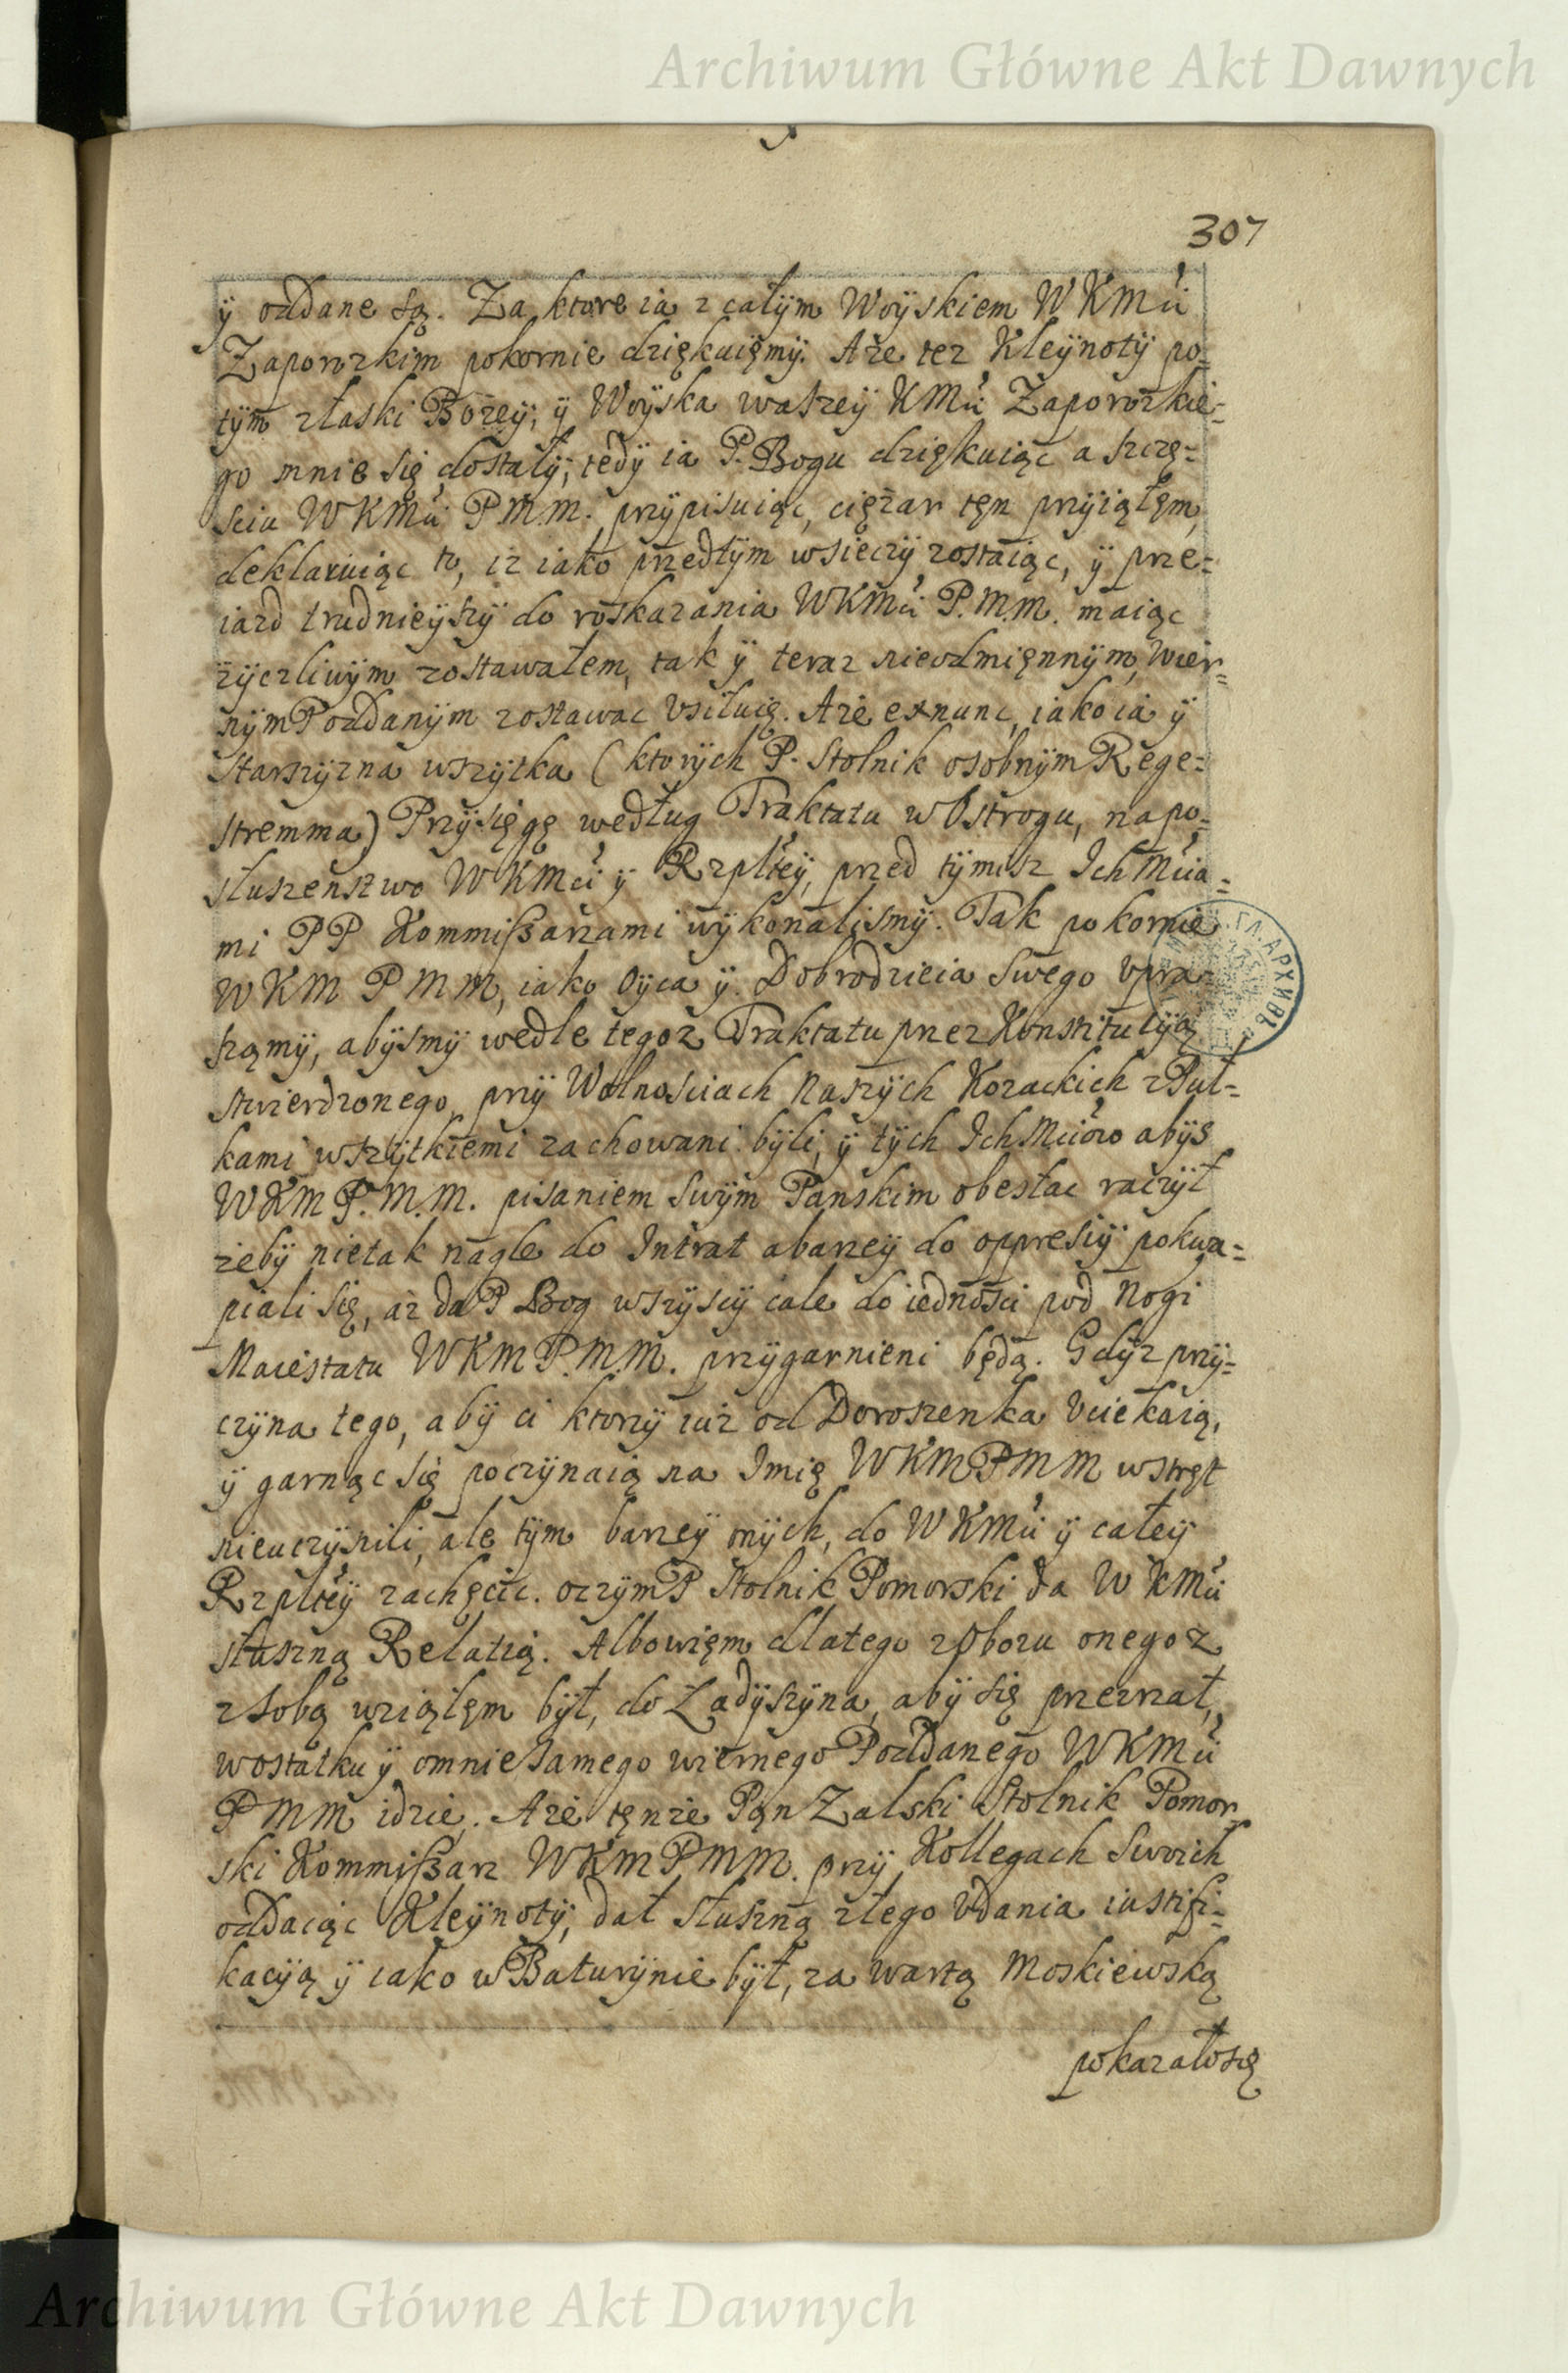 Archiwum Główne Akt Dawnych
307
ÿ oddane są. Za ktore ia z całÿm Woÿskiem WKMći
Zaporozkim pokornie dziękuięmÿ. Aże tez Kleÿnotÿ po-
tÿm złaski Bożeÿ, ÿ Woÿska waszeÿ KMći Zaporozkie-
go mnie się dostałÿ, tedÿ ia P. Bogu dziękuiąc a szczę-
sciu WKMći P.M.M. przÿpisuiąc, ciężar tęn przÿiąłęm,
deklaruiąc to, iz iako przedtÿm wsieczÿ zostaiąc, ÿ prze-
iazd trudnieÿszÿ do roskazania WKMći P.M.M. maiąc
zÿczliwÿm zostawałem, tak ÿ teraz nieodmięnnÿm, wier-
nÿm Poddanÿm zostawac Vsiłuię. Aże exnunc, iako ia ÿ
Starszÿzna wszÿtka (ktorÿch P. Stolnik osobnÿm Rege-
stremma) Przÿsięgę według Traktatu w Ostrogu, na po-
słuszenstwo WKMći ÿ Rzplteÿ, przed tÿmisz Ich Mcia-
mi PP Kommißarzami wÿkonalismÿ. Tak pokornie
WKM PMM, iako Oÿca ÿ Dobrodzieia Swego Vpra-
szamÿ, abÿsmÿ wedle tegoz Traktatu przez Konstitucÿą
stwierdzonego, przÿ Wolnosciach Naszÿch Kozackich z Puł-
kami wszÿtkiemi zachowani bÿli, ÿ tÿch Ich Mciow abÿs
WKM P.M.M. pisaniem Swÿm Panskim obesłac raczÿł
żebÿ nietak nagle do Intrat abarzeÿ do oppresiÿ pokwa-
piali się, aż da P Bog wszÿscÿ cale do iednosci pod Nogi
Maiestatu WKM P.M.M. przÿgarnieni będą. Gdÿz przÿ-
czÿna tego, abÿ ci ktorzÿ iuż od Doroszenka Vciekaią,
ÿ garnąc się poczÿnaią na Imię WKM PMM wstręt
nieuczÿnili, ale tÿm barzeÿ onÿch, do WKMći ÿ całeÿ
Rzplteÿ zachęcic. oczÿm P Stolnik Pomorski da WKMći
słuszną Relatią. Albowięm dlatego z Obozu onegoz
zsobą wziąłęm bÿł, do Ładÿszÿna, abÿ się przezrzał,
wostatku ÿ omnie Samego wiernego Poddanego WKMći
PMM idzie. Aże tęnże Pan Zalski Stolnik Pomor
ski Kommißarz WKM PMM. przÿ Kollegach Swoich
oddaiąc Kleÿnotÿ, dał słuszną złego Vdania iustifi-
kacÿą ÿ iako w Baturÿnie bÿł, za wartą Moskiewską
pokazałosię
Archiwum Główne Akt Dawnych